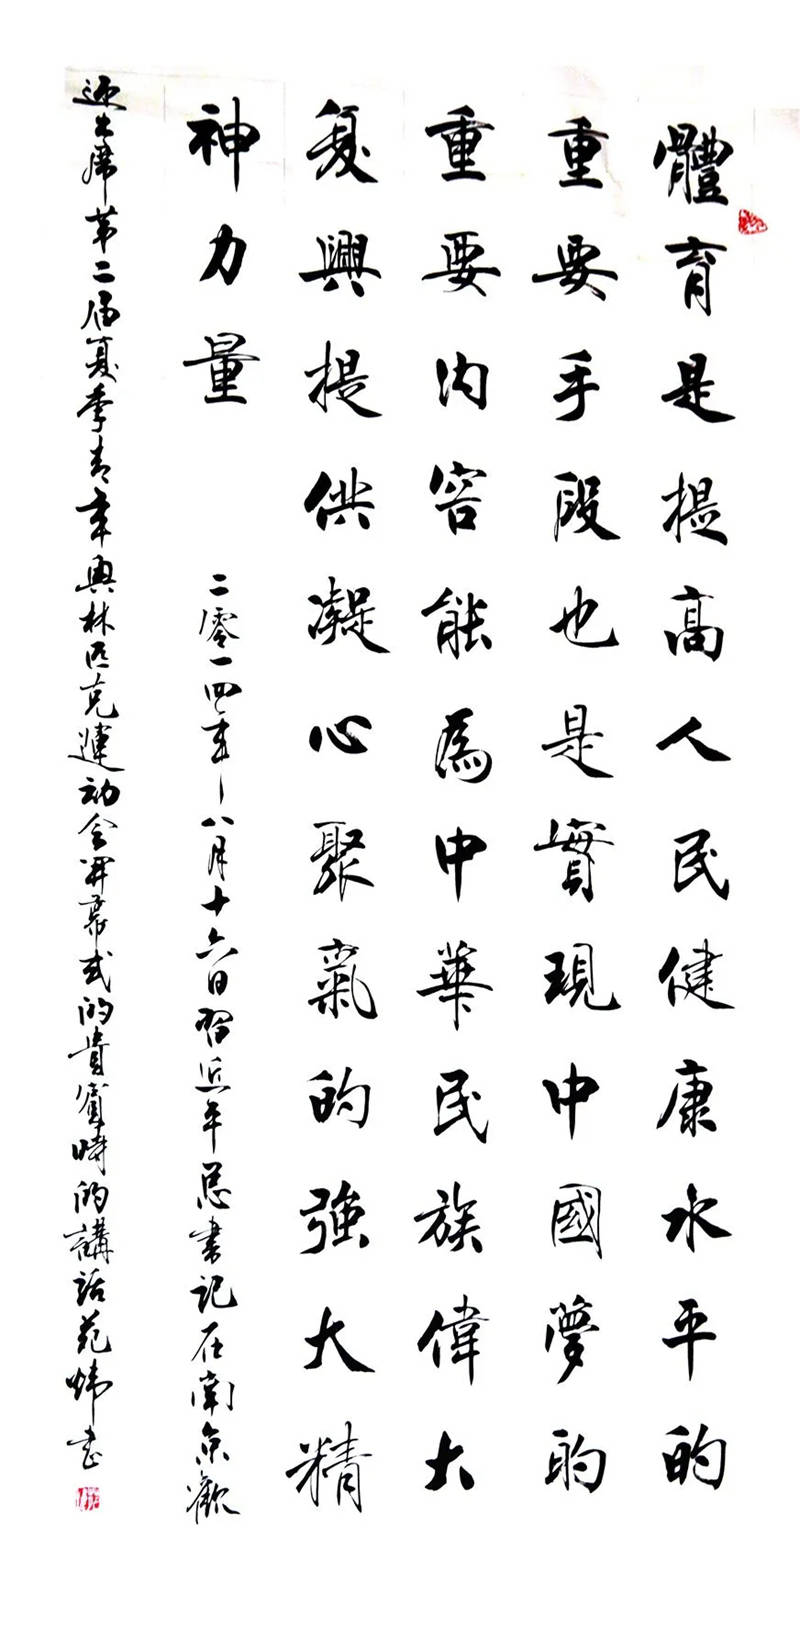 體育是提高人民健康水平的
重要手段也是實現中國夢的
重要内容能為中華民族偉大
复興提供凝心聚氣的強大精
神力量
二零一四年八月十六日習近平总書記在南京歡
迎出席第二届夏季青年奥林匹克運动会開幕式的貴賓時的講話范煒書